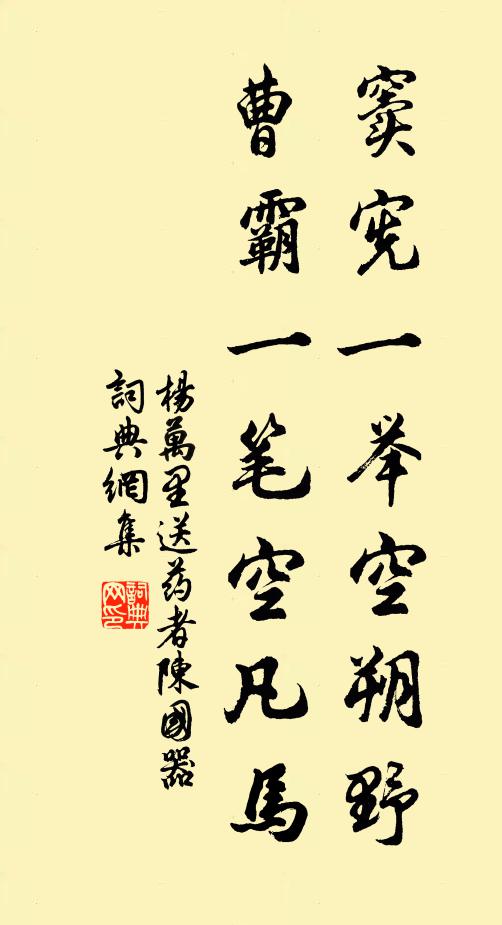 窦宪一举空朔野
曹霸一笔空凡馬
楊萬里送药者陳國器
詞典網集
詞典网印